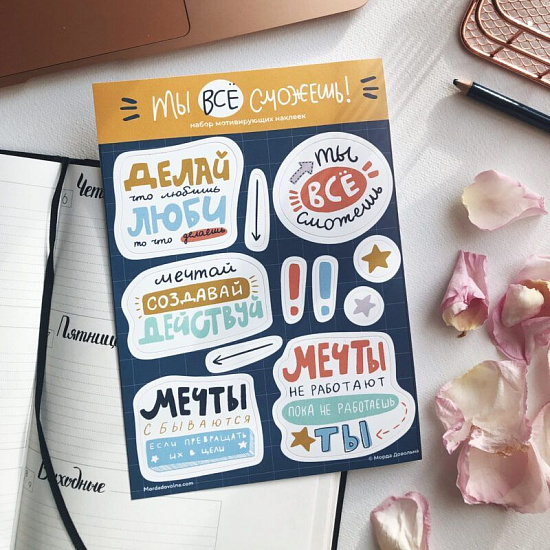 ТЫ ВСЁ СМОЖЕШЬ!
набор мотивирующих наклеек
ДЕЛАЙ
что любишь
ЛЮБИ
то что делаешь
ТЫ
ВСЁ
сможешь
мечтай
СОЗДАВАЙ
ДЕЙСТВУЙ
!!
МЕЧТЫ
СБЫВАЮТСЯ
ЕСЛИ ПРЕВРАЩАТЬ
ИХ В ЦЕЛИ
МЕЧТЫ
НЕ РАБОТАЮТ
ПОКА НЕ РАБОТАЕШЬ
ТЫ
Mordadovolna.com
© Морда Довольна
Чет
Пятница
Выходные